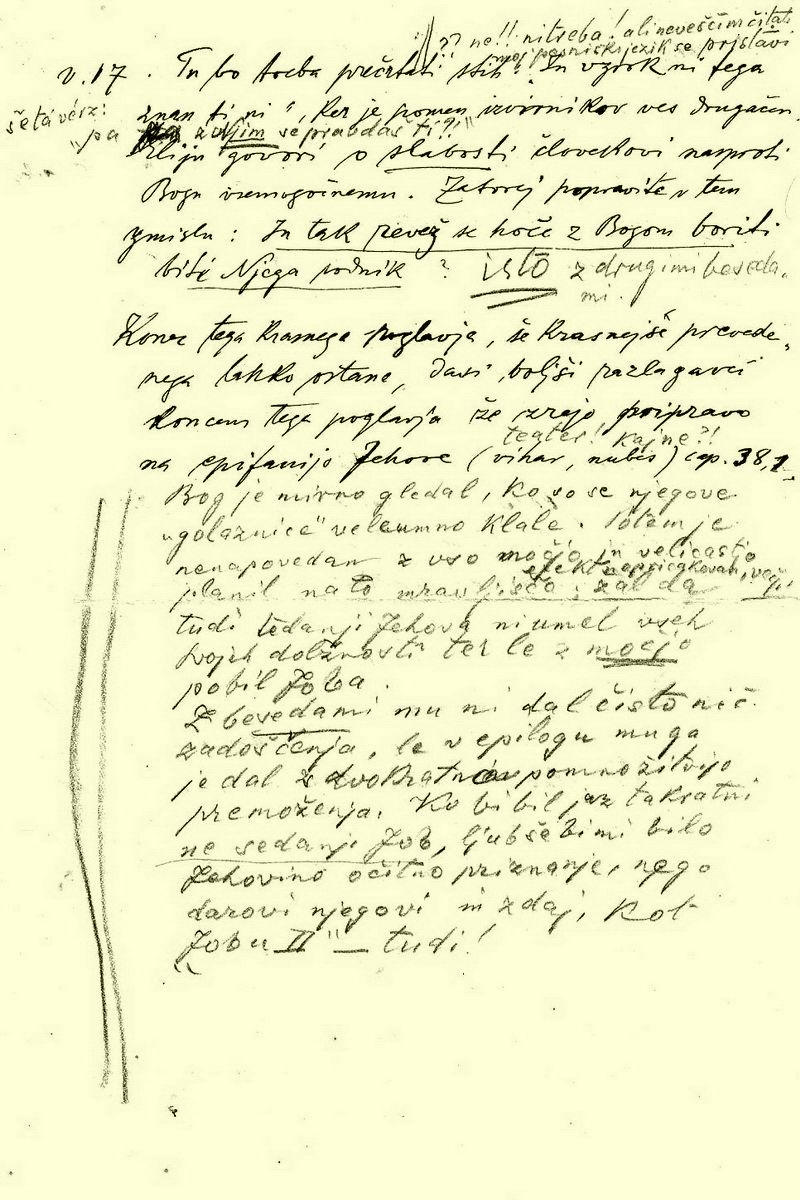 ?? ne!! ni treba! ali neveščim čitati
moj pesniški jezik se pristavi
v. 17. Tu bo treba prečrtati stih: "In vzrok ni tega
šetá vérz: znan ti ni", ker je pomen izvirnikov ves drugačen.
"pa z njim se pravdaš ti?!"
Eliju govori o slabosti človekovi nasproti
Bogu vsemogočnemu. Zatorej popravite v tem
zmislu: In tak revež se hoče z Bogom boriti
biti Njega sodnik? isto z drugimi beseda-
mi.
Konec tega krasnega poglavja, še krasnejše prevede-
nega lahko ostane, dasi boljši razlagavci
koncem tega poglavja že zrejo pripravo
teater! Kajne?!
na epifanijo Jehove (vihar, nubes) cap. 38,1
Bog je mirno gledal, ko so se njegove
"golaznice" veleumno klale. Potem je
nenapovedan z vso močjo in veličastjo
efekt
planil na to mravljišče; žal da
tudi tedanji Jehova ni umel vseh
svojih dolžnosti ter le z močjo
pobil Joba.
Z besedami mu ni dal čisto nič
zadoščenja, le v epilogu mu ga
je dal z dvokratno pomnožitvijo
premoženja. Ko bi bil jaz takratni
ne sedanji Job, ljubše bi mi bilo
Jehovino očitno priznanje, nego
darovi njegovi in zdaj, kot
"Jobu II" — tudi!